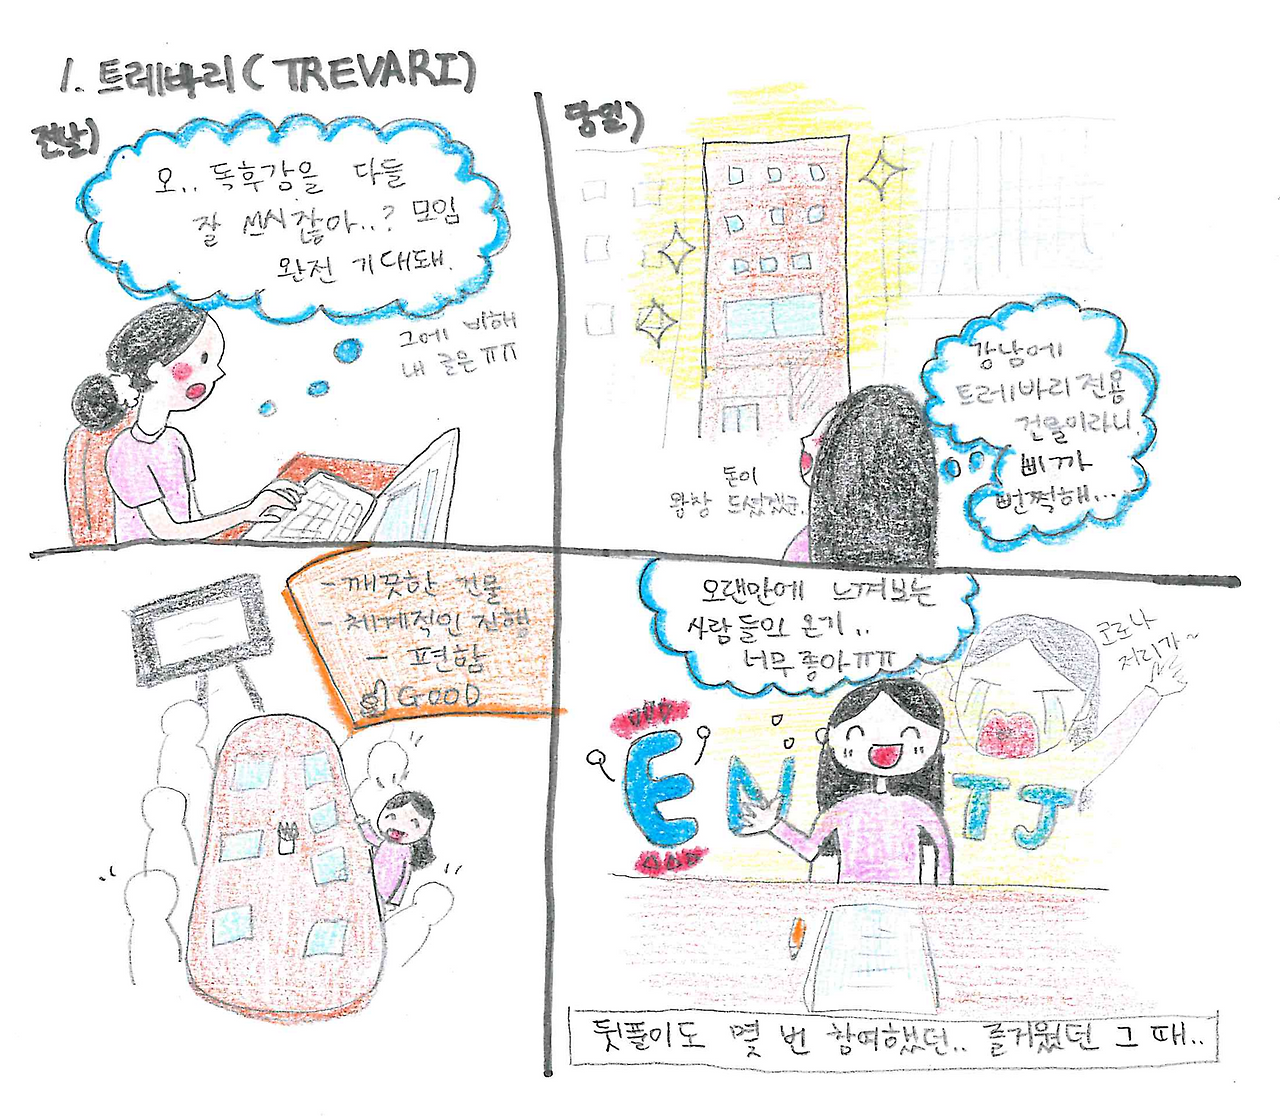 1. 트레바리(TREVARI)
전날)
오.. 독후감을 다들
잘 쓰시잖아..? 모임
완전 기대돼.
그에 비해
내 글은 ㅠㅠ
당일)
강남에
트레바리 전용
건물이라니.
삐까
번쩍해...
돈이
왕창 드셨겠군.
- 깨끗한 건물
- 체계적인 진행
- 편함
GOOD
오랜만에 느껴보는
사람들의 온기..
너무 좋아ㅠㅠ
코로나
저리가~
ENTJ
뒷풀이도 몇 번 참여했던.. 즐거웠던 그 때..